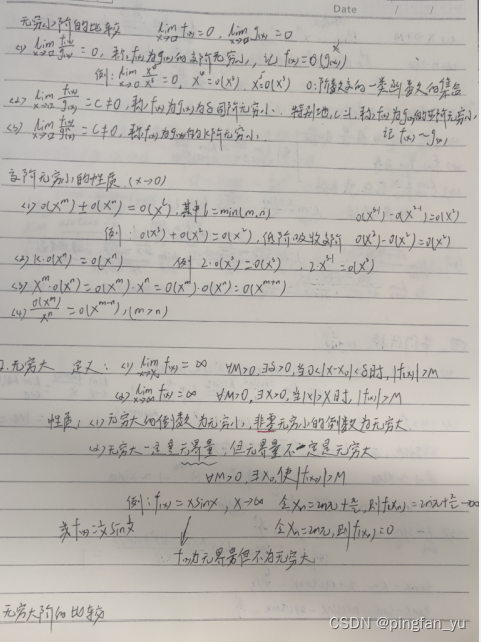 Date / /
无穷小阶的比较 lim x→0 f(x)=0, lim x→0 g(x)=0
(1) lim x→0 f(x)/g(x) = 0, 称f(x)为g(x)的高阶无穷小, 记 f(x)=o(g(x))
例: lim x→0 = 0, =o(x³), =o(x³) o:阶数高的一类函数的集合
(2) lim x→0 f(x)/g(x) = C≠0, 称f(x)为g(x)的同阶无穷小. 特别地, C=1, 称f(x)为g(x)的等价无穷小
记 f(x)~g(x)
(3) lim x→0 = C≠0, 称f(x)为g(x)的k阶无穷小.
高阶无穷小的性质 (x→0)
(1) o(xᵐ)±o(xⁿ)=o(xˡ), 其中l=min(m,n)
例: o(x³)+o(x²)=o(x²), 低阶吸收高阶 o(x²)-o(x²)=o(x²)
(2) k·o(xⁿ)=o(xⁿ) 例 2·o(x²)=o(x²)
(3) xᵐ·o(xⁿ)=o(xᵐ)·xⁿ=o(xᵐ)·o(xⁿ)=o(xᵐ⁺ⁿ)
(4) o(xᵐ)/xⁿ=o(xᵐ⁻ⁿ), (m>n)
2.无穷大 定义: (1) lim x→x₀ f(x)=∞ ∀M>0,∃δ>0, 当0<|x-x₀|<δ时, |f(x)|>M
(2) lim x→∞ f(x)=∞ ∀M>0, ∃X>0, 当|x|>X时, |f(x)|>M
性质: (1)无穷大的倒数为无穷小, 非零无穷小的倒数为无穷大
(2)无穷大一定是无界量, 但无界量不一定是无穷大
∀M>0, ∃x₀使|f(x₀)|>M
例: f(x)=xsinx, x→∞ 令xₙ=2nπ+π/2, 则f(xₙ)=2nπ+π/2→∞
或f(x)=1/x sin1/x 令xₙ=2nπ, 则f(xₙ)=0
f(x)为无界量但不为无穷大
无穷大阶的比较
CSDN @pingfan_yu